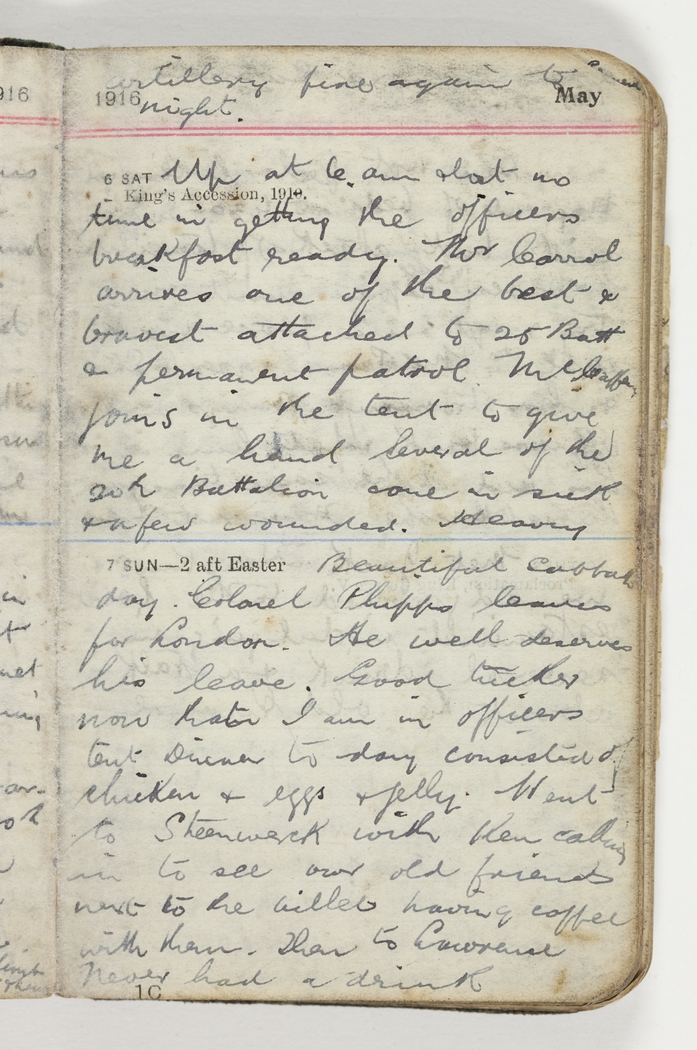 artillery fire again to
1916 night. May
6 SAT Up at 6. am & lost no
King's Accession, 1910.
time in getting the officers
breakfast ready. Mr Carrol
arrives one of the best &
bravest attached to 25 Batt
& permanent patrol.
joins in the tent to give
me a hand Several of the
20th Battalion come in sick
& a few wounded. Heavy
7 SUN—2 aft Easter Beautiful
day. Colonel Phipps leaves
for London. He well deserves
his leave. Good tucker
now that I am in officers
tent Dinner to day consisted of
chicken & eggs & jelly. Went
to Steenwerck with Ken calling
in to see our old friends
next to the billet having coffee
with them. Then to Lawrence
Never had a drink